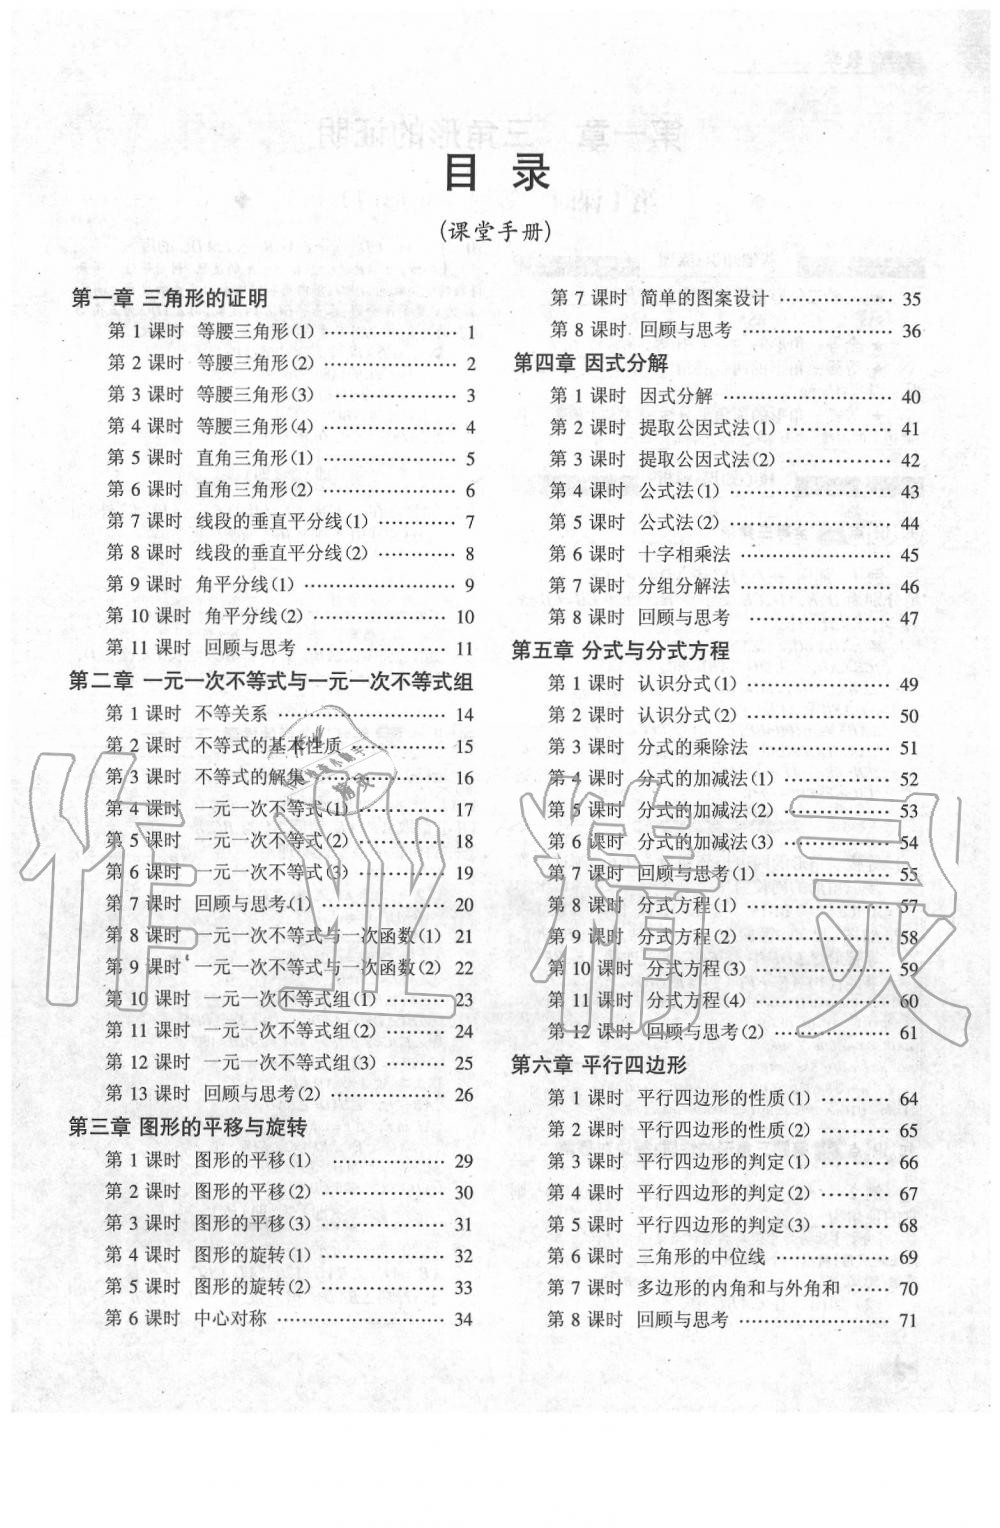 目 录
(课堂手册)
第一章 三角形的证明
第 1 课时 等腰三角形(1) ………………… 1
第 2 课时 等腰三角形(2) ………………… 2
第 3 课时 等腰三角形(3) ………………… 3
第 4 课时 等腰三角形(4) ………………… 4
第 5 课时 直角三角形(1) ………………… 5
第 6 课时 直角三角形(2) ………………… 6
第 7 课时 线段的垂直平分线(1) ………… 7
第 8 课时 线段的垂直平分线(2) ………… 8
第 9 课时 角平分线(1) …………………… 9
第 10 课时 角平分线(2) ………………… 10
第 11 课时 回顾与思考 ………………… 11
第二章 一元一次不等式与一元一次不等式组
第 1 课时 不等关系 …………………… 14
第 2 课时 不等式的基本性质 ………… 15
第 3 课时 不等式的解集 ……………… 16
第 4 课时 一元一次不等式(1) ………… 17
第 5 课时 一元一次不等式(2) ………… 18
第 6 课时 一元一次不等式(3) ………… 19
第 7 课时 回顾与思考(1) ……………… 20
第 8 课时 一元一次不等式与一次函数(1) 21
第 9 课时 一元一次不等式与一次函数(2) 22
第 10 课时 一元一次不等式组(1) ……… 23
第 11 课时 一元一次不等式组(2) ……… 24
第 12 课时 一元一次不等式组(3) ……… 25
第 13 课时 回顾与思考(2) ……………… 26
第三章 图形的平移与旋转
第 1 课时 图形的平移(1) ……………… 29
第 2 课时 图形的平移(2) ……………… 30
第 3 课时 图形的平移(3) ……………… 31
第 4 课时 图形的旋转(1) ……………… 32
第 5 课时 图形的旋转(2) ……………… 33
第 6 课时 中心对称 …………………… 34
第 7 课时 简单的图案设计 …………… 35
第 8 课时 回顾与思考 ………………… 36
第四章 因式分解
第 1 课时 因式分解 …………………… 40
第 2 课时 提取公因式法(1) …………… 41
第 3 课时 提取公因式法(2) …………… 42
第 4 课时 公式法(1) …………………… 43
第 5 课时 公式法(2) …………………… 44
第 6 课时 十字相乘法 ………………… 45
第 7 课时 分组分解法 ………………… 46
第 8 课时 回顾与思考 ………………… 47
第五章 分式与分式方程
第 1 课时 认识分式(1) ………………… 49
第 2 课时 认识分式(2) ………………… 50
第 3 课时 分式的乘除法 ……………… 51
第 4 课时 分式的加减法(1) …………… 52
第 5 课时 分式的加减法(2) …………… 53
第 6 课时 分式的加减法(3) …………… 54
第 7 课时 回顾与思考(1) ……………… 55
第 8 课时 分式方程(1) ………………… 57
第 9 课时 分式方程(2) ………………… 58
第 10 课时 分式方程(3) ……………… 59
第 11 课时 分式方程(4) ……………… 60
第 12 课时 回顾与思考(2) …………… 61
第六章 平行四边形
第 1 课时 平行四边形的性质(1) ……… 64
第 2 课时 平行四边形的性质(2) ……… 65
第 3 课时 平行四边形的判定(1) ……… 66
第 4 课时 平行四边形的判定(2) ……… 67
第 5 课时 平行四边形的判定(3) ……… 68
第 6 课时 三角形的中位线 …………… 69
第 7 课时 多边形的内角和与外角和 …… 70
第 8 课时 回顾与思考 ………………… 71
作业精灵